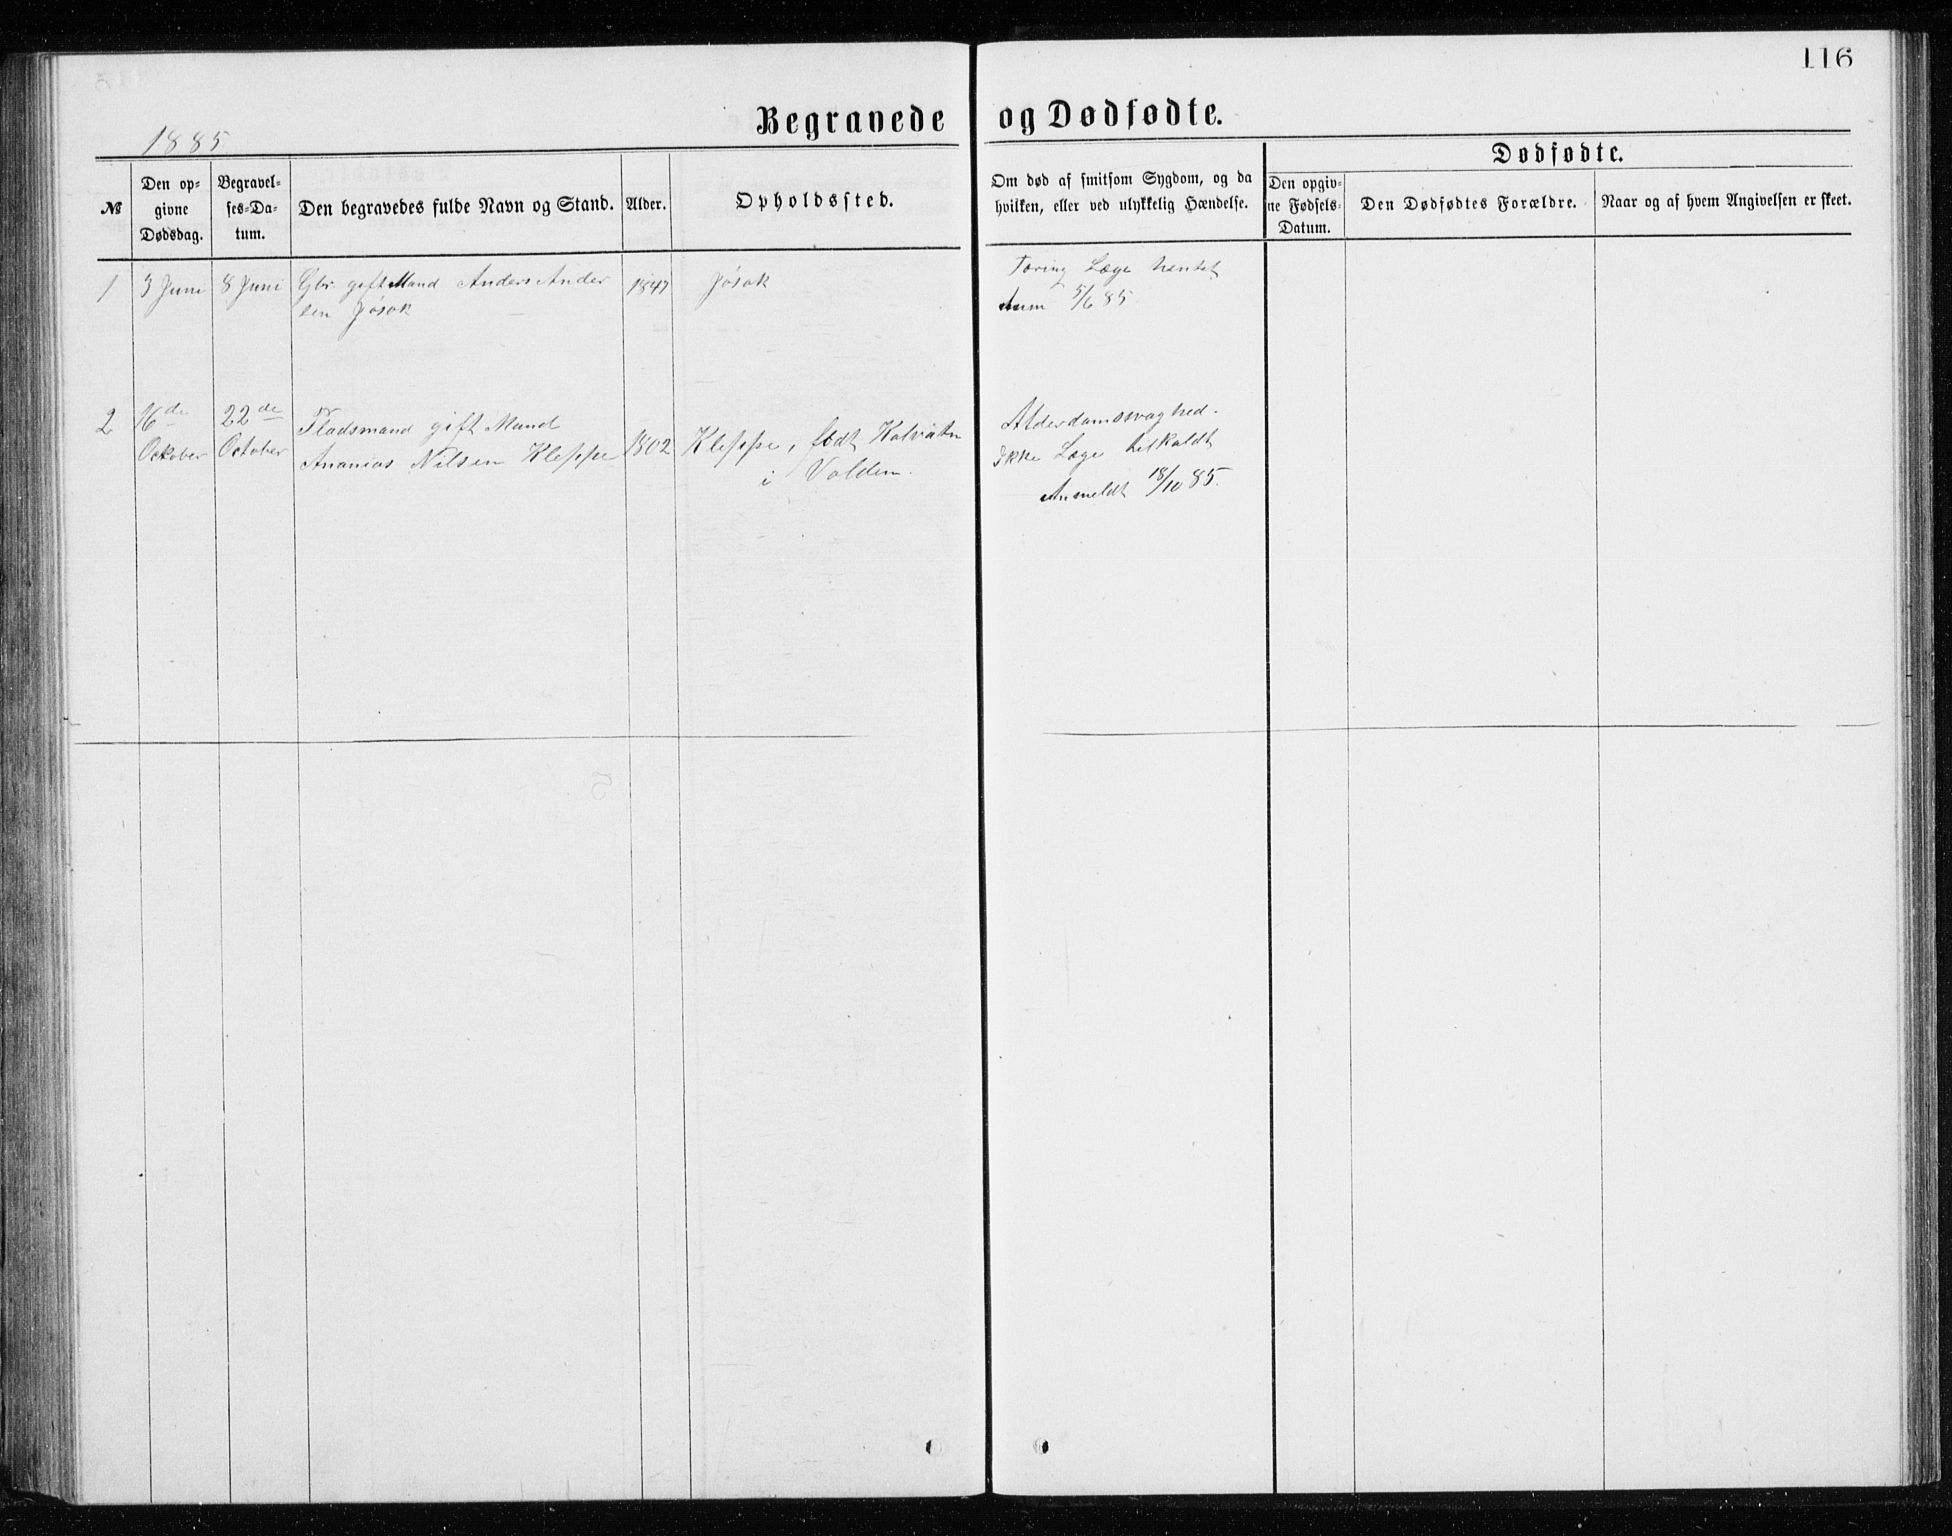 116
Begravede og Dødfødte.
1885
Dødfødte.
№
Den op-
givne
Dødsdag.
Begravel-
ses-Da-
tum.
Den begravedes fulde Navn og Stand.
Alder.
Opholdssted.
Om død af smitsom Sygdom, og da
hvilken, eller ved ulykkelig Hændelse.
Den opgiv-
ne Fødsels-
Datum.
Den Dødfødtes Forældre.
Naar og af hvem Angivelsen er skeet.
1 3 Juni 8 Juni Gbr. gift Mand Anders Ander 1847 Jøsok Tæring Læge hentet
sen Jøsok Anm 5/6 85.
2 16de 22de Pladsmand gift Mand Alderdomssvaghed.
October October Ananias Nilsen Kleppe 1802 Kleppe, født Kalvatn Ikke Læge tilkaldt
i Volden. Anmeldt 18/10 85.